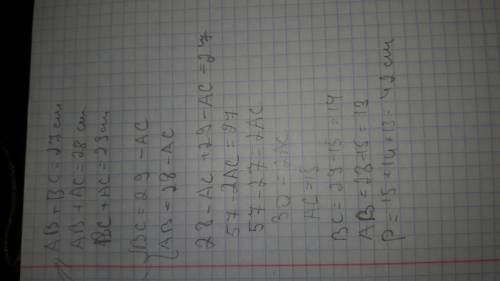 AB + BC = 27 cm
AB + AC = 28 cm
BC + AC = 29 cm
{BC = 29 - AC
{AB = 28 - AC
28 - AC + 29 - AC = 27
57 - 2AC = 27
57 - 27 = 2AC
30 = 2AC
AC = 15
BC = 29 - 15 = 14
AB = 28 - 15 = 13
P = 15 + 14 + 13 = 42 cm